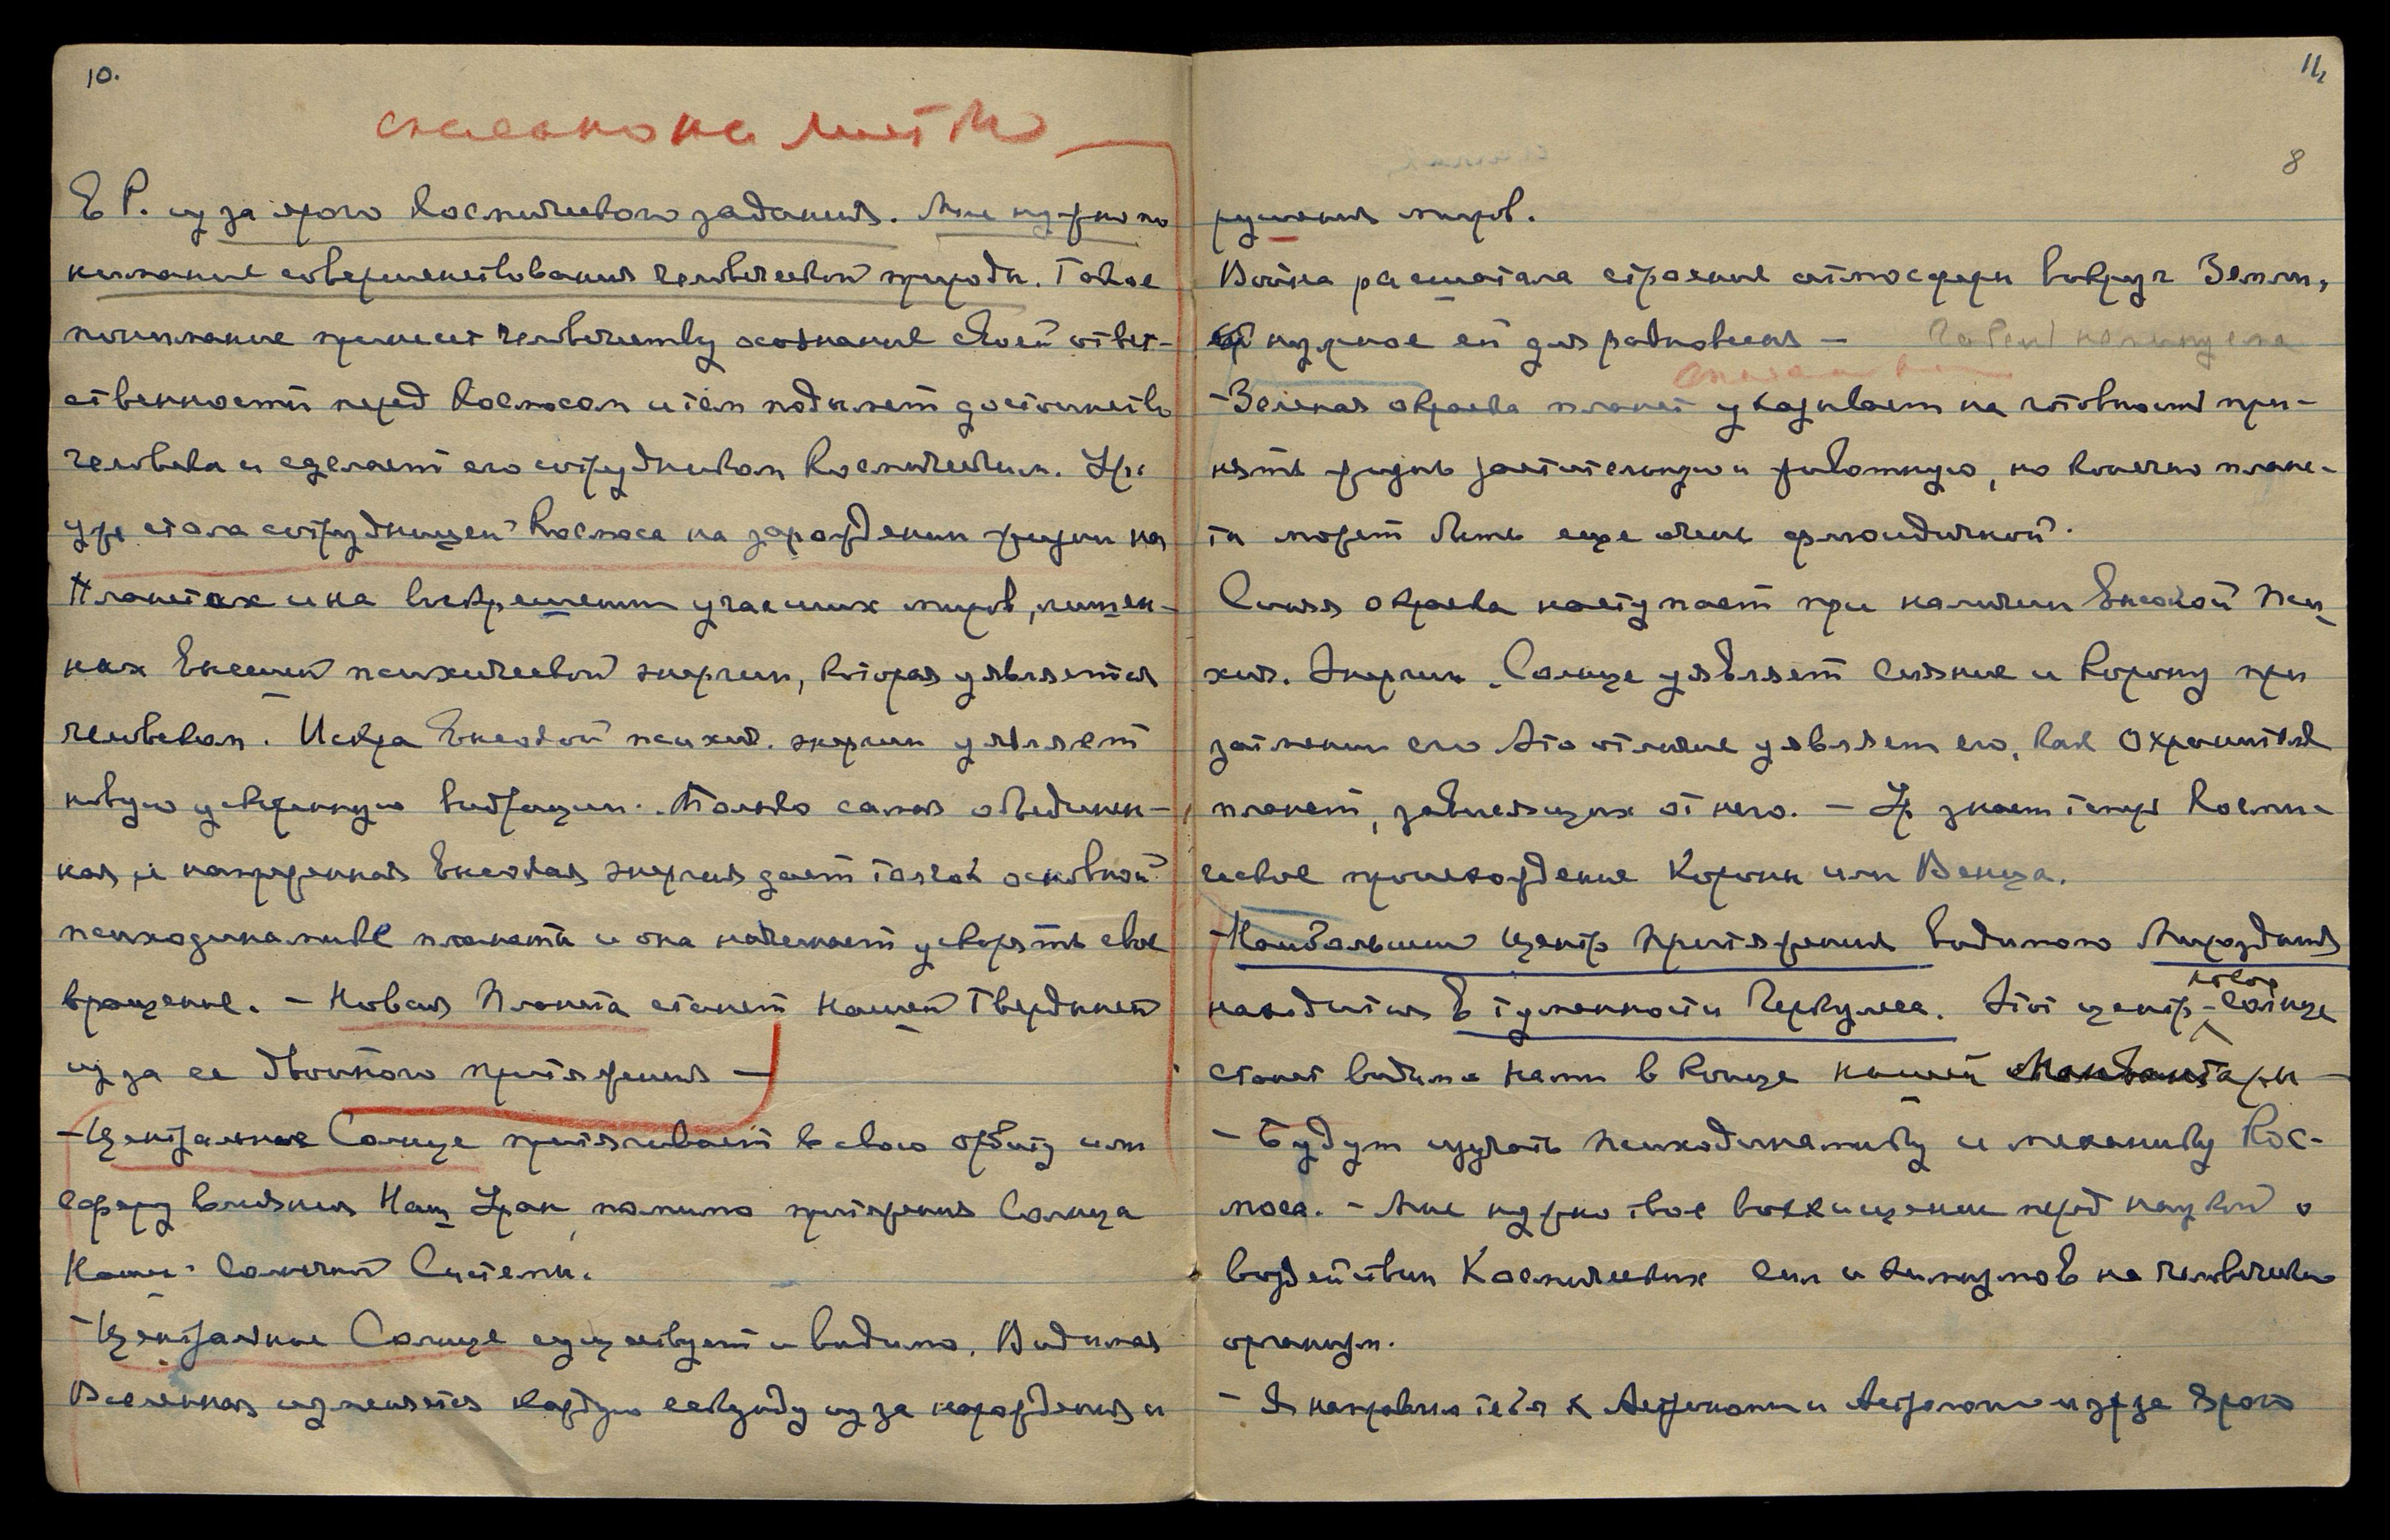 10.
Е Р. из за ярого Космического задания. Мне нужно по
нимание совершенствования человеческой природы. Такое
понимание принесет человечеству осознание своей ответ-
ственности перед Космосом и тем подымет достоинство
человека и сделает его сотрудником Космическим. Ур.
уже стала сотрудницей Космоса на зарождении жизни на
Планетах и на воскрешении угасших миров, лишен-
ных Высшей психической энергии, которая уявляется
человеком. Искра Высокой психич. энергии уявляет
новую ускоренную вибрацию. Только самая объединен-
ная и напряженная Высокая энергия дает толчок основной
психодинамике планеты и она начинает ускорять свое
вращение. - Новая Планета станет Нашей Твердыней
из за ее двойного притяжения -
- Центральное Солнце притягивает в свою орбиту или
сферу влияния Наш Уран, помимо притяжения Солнца
Нашей Солнечной Системы.
- Центральное Солнце существует и видимо. Видимая
Вселенная изменяется каждую секунду из за нарождения и
11,
8
рушения миров.
Война расшатала строение атмосферы вокруг Земли,
нужное ей для равновесия -
- Зеленая окраска планет указывает на готовность при-
нять жизнь растительную и животную, но конечно плане-
та может быть еще очень флюидичной.
Синяя окраска наступает при наличии Высокой Пси
хич. Энергии. Солнце уявляет Сияние и Корону при
затмении его Это отличие уявляет его, как Охранителя
планет, зависящих от него. - Ур. знает теперь Косми-
ческое происхождение Короны или Венца.
- Наибольший центр притяжения видимого Мироздания
находится в туманности Геркулеса. Этот центр - новое солнце
станет видимо нами в конце нашей Манвантары -
- Будут изучать психодинамику и механику Кос-
моса. - Мне нужно твое восхищение перед наукой о
воздействии Космических сил и химизмов на человеческий
организм.
- Я направил тебя к Астрономии и Астрологии из за ярого